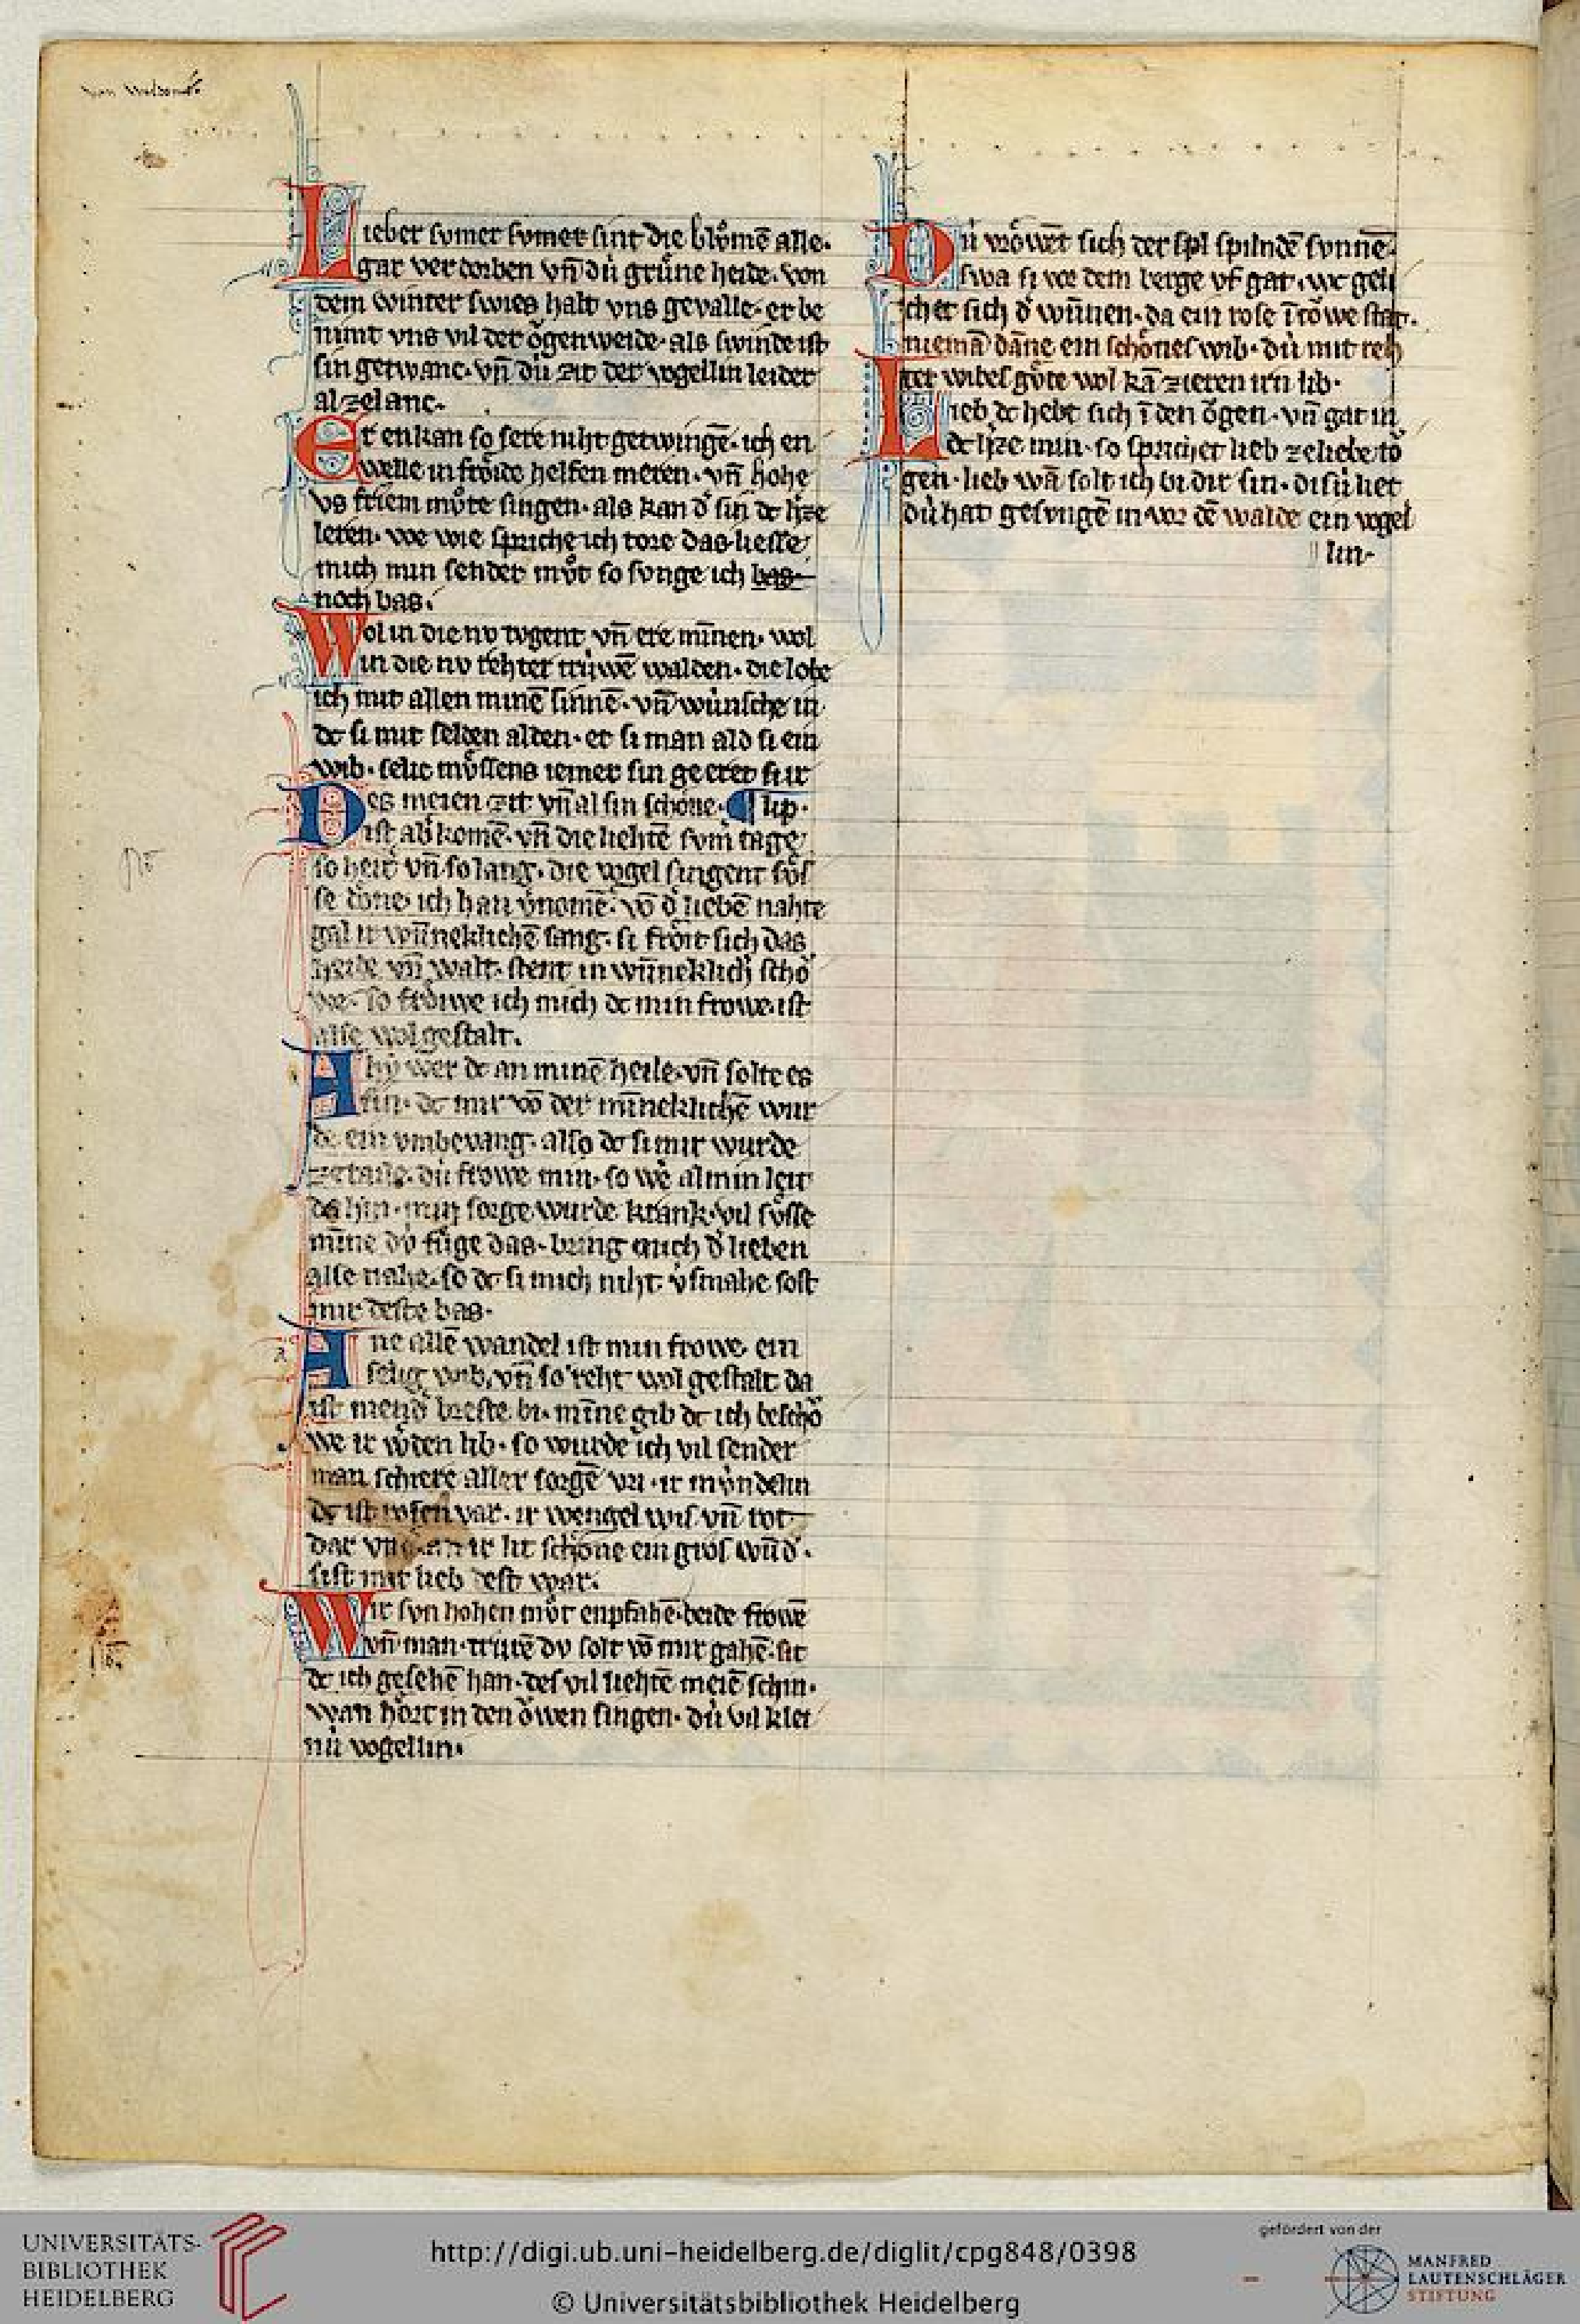 von
Lieber sůmer sůmer sint die blůmē alle.
gar verdorben vn̄ dú grůne heide. von
dem winter swies halt vns gevalle. er be
nimt vns vil der ǒgenweide. als swinde ist
sin getwanc. vn̄ dú zit der vogellin leider
al ze lanc.
Er enkan so sere niht getwingē. ich en
welle in frǒide helfen meren. vn̄ hohe
vs friem můte singen. als kan d̕ sin dc h̕ze
leren. we wie spriche ich tore das liesse
mich min sender můt so sunge ich bas
noch bas.
Wol in die nv tvgent vn̄ ere minnen. wol
in die nv rehter trúwē walden. die lobe
ich mit allen minē sinnē. vn̄ wúnsche in
dc si mit selden alden. er si man ald si ein
wib. selic můssens iemer sin geeret fúr
Des meien zit vn̄ al sin schone. ¶ lip.
ist ab̕ komē. vn̄ die liehtē som̄ tage
so heis vn̄ so lang. die vogel singent sůs
se dǒne. ich han v̕nomē. vō d̕ liebē nahte
gal ir wūneklichē sang. si frǒit sich das
heide vn̄ walt. stent in wūneklich̕ schǒ
we. so frǒwe ich mich dc min frowe ist
alse wol gestalt.
Ahy wer dc an minē heile. vn̄ solte es
sin. dc mir vō der minneklichē wur
de ein vmbevang. also dc si mir wurde
ze teile. dú frowe min. so wē al min leit
da hin. min sorge wurde krank. vil sůsse
mīne dv fůge das. bring mich d̕ lieben
alse nahe. so dc si mich niht v̕smahe sost
mir deste bas.
Ane allē wandel ist min frowe ein
selig wib. vn̄ so reht wol gestalt da
ist mend̕ breste bi. mīne gib dc ich beschǒ
we ir w̕den lib. so wurde ich vil sender
man schiere aller sorgē vri. ir múndelin
dc ist rosen var. ir wengel wis vn̄ rot
dar ir lit schone ein gros wūd̕.
sist mir lieb dest war.
Wir svn hohen můt enpfahē. beide frowē
vn̄ man. trurē dv solt vō mir gahē. sit
dc ich gesehē han. des vil liehtē meiē schin.
wan hǒrt in den ǒwen singen. dú vil klei
nú vogellin.
Dú vrǒwēt sich der spil spilndē sunnē.
swa si vor dem berge vf gat. wc geli
chet sich d̕ wūnen. da ein rose ī tǒwe stat.
niemā dāne ein schǒnes wib. dú mit reh
ter wibes gǒte wol kā zieren irn lib.
Lieb dc hebt sich ī den ǒgen. vn̄ gat in
dc h̕ze min. so sprichet lieb ze liebe tǒ
gen. lieb wā solt ich bi dir sin. disú liet
dú hat gesvngē in vor dē walde ein vogel
lin.
UNIVERSITÄTS-
BIBLIOTHEK
HEIDELBERG
http://digi.ub.uni-heidelberg.de/diglit/cpg848/0398
© Universitätsbibliothek Heidelberg
gefördert von der
MANFRED
LAUTENSCHLÄGER
STIFTUNG